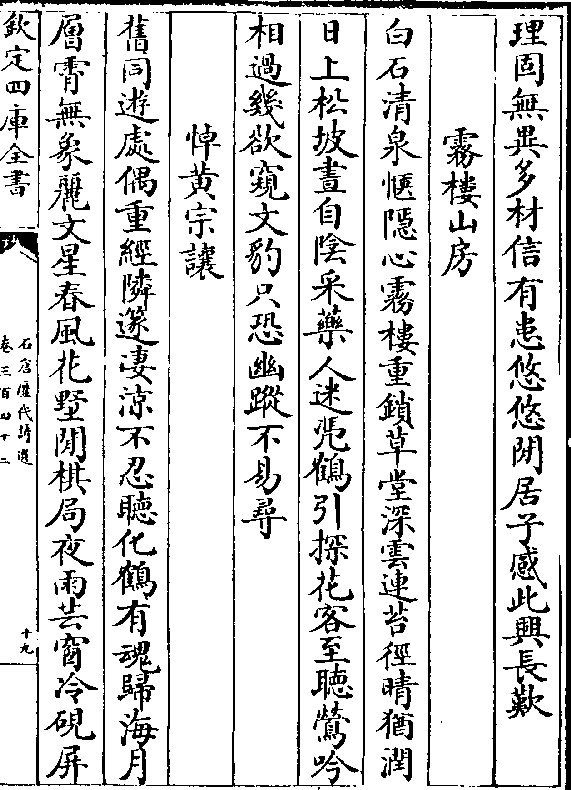 理固無異多材信有患悠悠閒居子感此興長歎
霧樓山房
白石清泉愜隠心霧樓重鎖草堂深雲連苔徑晴猶潤
日上松坡晝自陰采藥人迷凴鶴引探花客至聽鶯吟
相過幾欲窺文豹只恐幽蹤不易尋
悼黄宗讓
舊同遊處偶重經隣篴凄涼不忍聽化鶴有魂歸海月
層霄無象麗文星春風花墅閒棋局夜雨芸窗冷硯屏
欽定四庫全書
石倉歴代詩選
卷三百四十二
十九